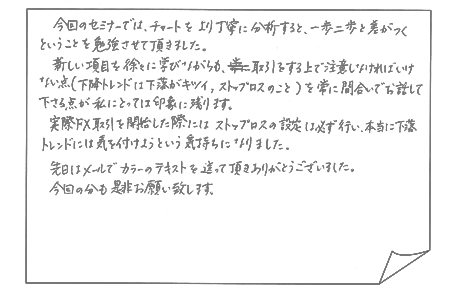 今回のセミナーでは、チャートをより丁寧に分析すると、一歩二歩と差がつく
ということを勉強させて頂きました。
新しい項目を徐々に学びながらも、常に取引をする上で注意しなければいけ
ない点(下降トレンドは下落がキツイ、ストップロスのこと)を常に間合いでお話して
下さる点が私にとっては印象に残ります。
実際FX取引を開始した際にはストップロスの設定は必ず行い、本当に下落
トレンドには気を付けようという気持ちになりました。
先日はメールでカラーのテキストを送って頂きありがとうございました。
今回の分も是非お願い致します。